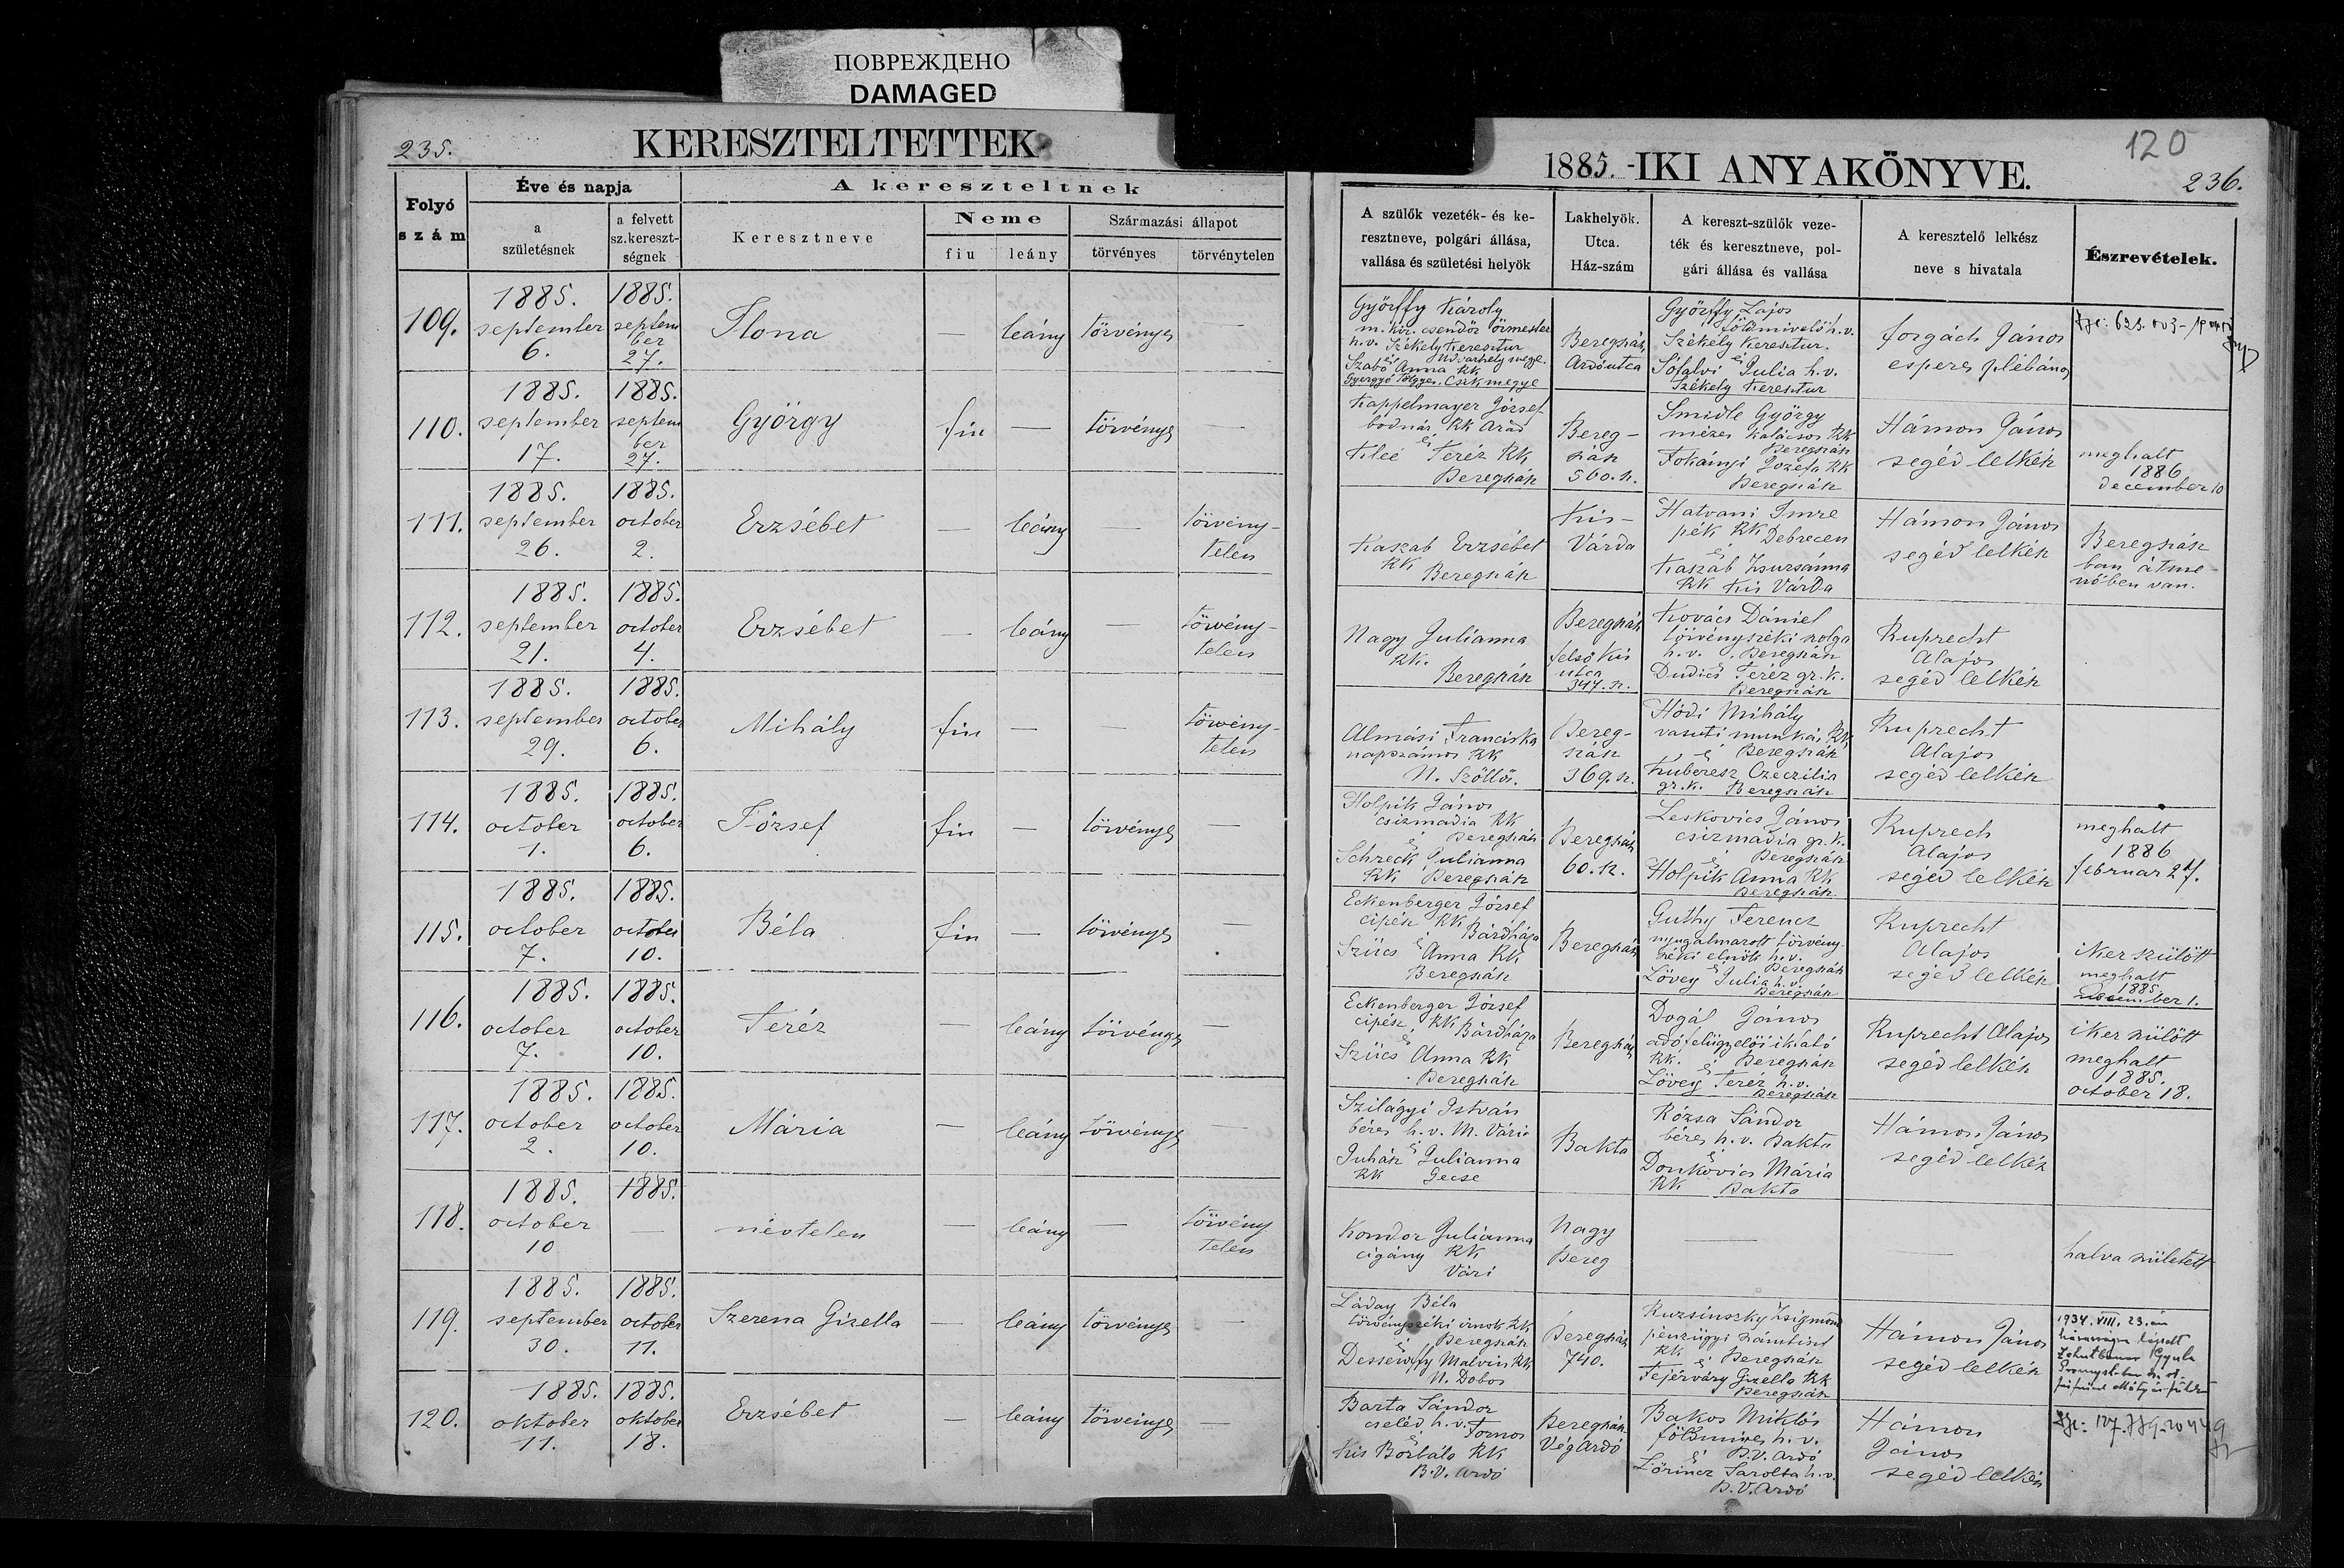 ПОВРЕЖДЕНО
DAMAGED
235.
KERESZTELTETTEK
Folyó
szám
Éve és napja
a
születésnek
a felvett
sz.kereszt-
ségnek
A kereszteltnek
Keresztneve
Neme
fiu
leány
Származási állapot
törvényes
törvénytelen
109.
1885.
september
6.
1885.
septem
ber
27.
Ilona
—
leány
törvényes
—
110.
1885.
september
17.
1885.
septem
ber
27.
György
fiu
—
törvényes
—
111.
1885.
september
26.
1885.
october
2.
Erzsébet
—
leány
—
törvény-
telen
112.
1885.
september
21.
1885.
october
4.
Erzsébet
—
leány
—
törvény-
telen
113.
1885.
september
29.
1885.
october
6.
Mihály
fiu
—
—
törvény-
telen
114.
1885.
october
1.
1885.
october
6.
József
fiu
—
törvényes
—
115.
1885.
october
7.
1885.
october
10.
Béla
fiu
—
törvényes
—
116.
1885.
october
7.
1885.
october
10.
Teréz
—
leány
törvényes
—
117.
1885.
october
2.
1885.
october
10.
Mária
—
leány
törvényes
—
118.
1885.
october
10
1885.
—
névtelen
—
leány
—
törvény
telen
119.
1885.
september
30.
1885.
october
11.
Szerena Gizella
—
leány
törvényes
—
120.
1885.
oktober
11.
1885.
oktober
18.
Erzsébet
—
leány
törvényes
—
120
1885. -IKI ANYAKÖNYVE.
236.
A szülők vezeték- és ke-
resztneve, polgári állása,
vallása és születési helyök
Lakhelyök.
Utca.
Ház-szám
A kereszt-szülők veze-
ték és keresztneve, pol-
gári állása és vallása
A keresztelő lelkész
neve s hivatala
Észrevételek.
Györffy Károly
m. kir. csendőr örmester
h.v. Székely Keresztur
és Udvarhely megye
Szabó Anna RK
Gyergyó Tölgyes. Csik megye
Beregszász
Ardó utca
Györffy Lajos
földmivelő h.v.
Székely Keresztur.
és
Sófalvi Julia h.v.
Székely Keresztur
Forgách János
esperes plébános
Kappelmayer József
bodnár RK Arad
és
Kleé Teréz RK
Beregszász
Bereg-
szász
560. sz.
Smidle György
mézes kalácsos RK
Beregszász
Jozefa RK
Beregszász
Hámon János
segéd lelkész
meghalt
1886
december 10
Kaszab Erzsébet
RK
Beregszász
Kis-
Várda
Hatvani Imre
pék RK Debrecen
és
Kaszab Zsuzsánna
RK Kis Várda
Hámon János
segéd lelkész
Beregszász
ban átme-
nőben van.
Nagy Julianna
RK.
Beregszász
Beregszász
felső kis
utca
347. sz.
Kovács Dániel
törvényszéki szolga
h.v. Beregszász
és
Dudics Teréz gr.k.
Beregszász
Ruprecht
Alajos
segéd lelkész
Almási Franciska
napszámos RK
N. Szöllős.
Bereg-
szász
369. sz.
Hódi Mihály
vasuti munkás RK
és Beregszász
Kuberesz Czeczilia
gr.k. Beregszász
Ruprecht
Alajos
segéd lelkész
Holpik János
csizmadia RK
és Beregszász
Schreck Julianna
RK Beregszász
Beregszász
60. sz.
Leskovics János
csizmadia gr.k.
és Beregszász
Holpik Anna RK
Beregszász.
Ruprech
Alajos
segéd lelkész
meghalt
1886
februar 27.
Eckenberger József
cipész RK Bárdháza
és
Szücs Anna RK
Beregszász
Beregszász
Guthy Ferencz
nyugalmazott törvény-
széki elnök h.v.
és Beregszász
Lövey Julia h.v.
Beregszász
Ruprecht
Alajos
segéd lelkész
iker szülött
meghalt
1885
december 1.
Eckenberger József
cipész, RK Bárdháza
és
Szücs Anna RK
Beregszász
Beregszász
Dogál János
adófelügyelői iktató
RK. Beregszász
és
Lövey Teréz h.v.
Beregszász
Ruprecht Alajos
segéd lelkész
iker szülött
meghalt
1885.
october 18.
Szilágyi István
béres h.v. M. Vári
és
Juhász Julianna
RK Gecse
Bakta
Rózsa Sándor
béres h.v. Bakta
és
Donkovics Mária
RK Bakta
Hámon János
segéd lelkész
Kondor Julianna
cigány RK
Vári
Nagy
Bereg
—
—
halva született
Láday Béla
törvényszéki irnok RK
és Beregszász
Dessewffy Malvin RK
N. Dobos
Beregszász
740.
Ruzsinszky Zsigmond
pénzügyi számtiszt
RK Beregszász
és
Fejérváry Gizella RK
Beregszász
Hámon János
segéd lelkész
1934. VIII. 23. án
házasságra lépett
Gyula
Barta Sándor
cseléd h.v. Tornos
és
Kis Borbála RK
B.V. Ardó
Beregszász
Vég Ardó
Bakos Miklós
földmives h.v.
és B.V. Ardó
Lörincz Sarolta h.v.
B.V. Ardó
Hámon
János
segéd lelkész